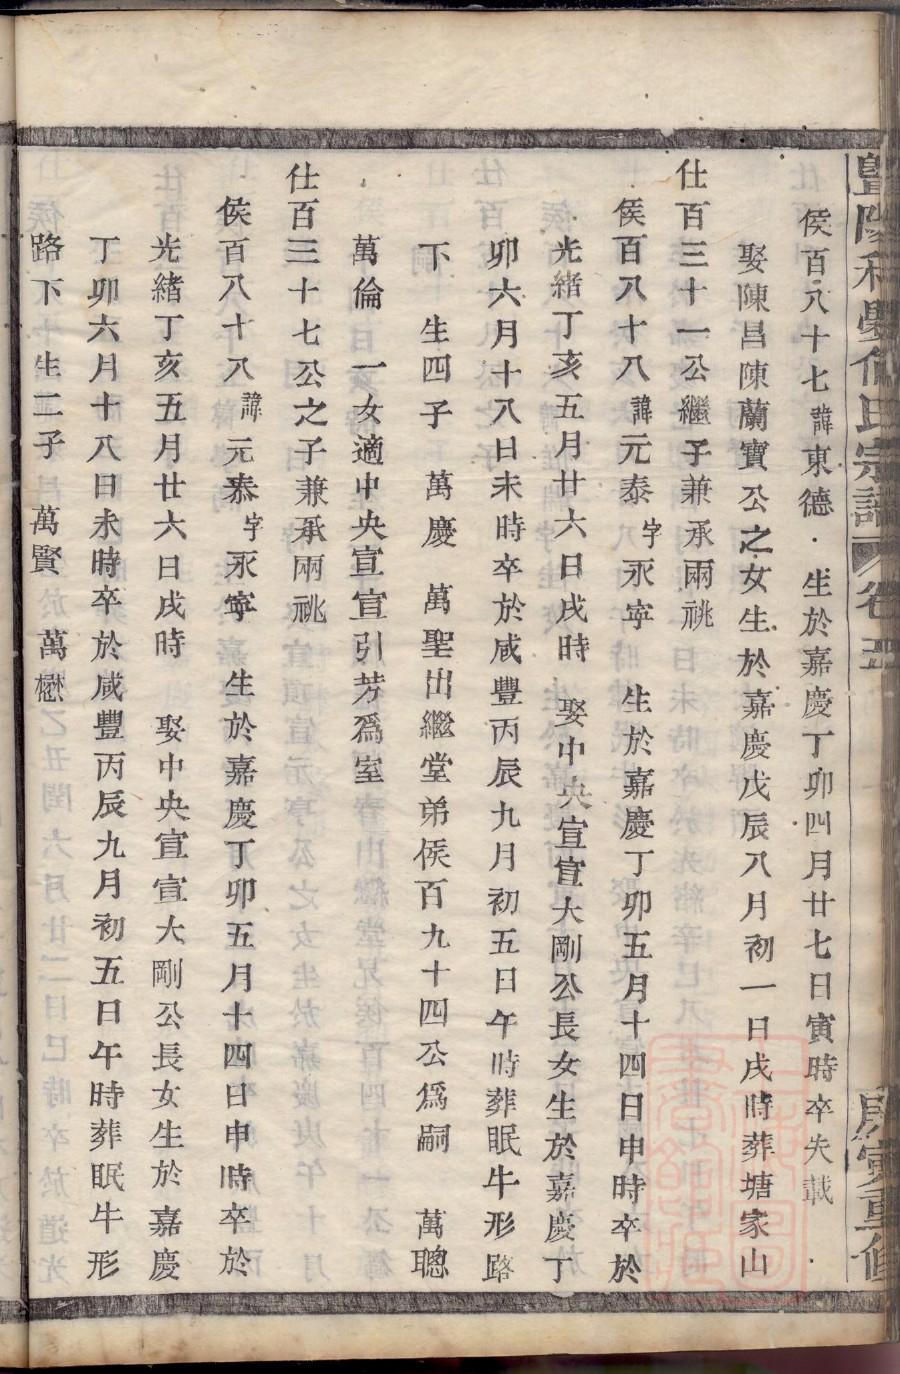 暨陽和 何氏宗譜 卷五 庚寅重修
侯百八十七諱東德 生於嘉慶丁卯四月廿七日寅時卒失載
娶陳昌陳蘭寶公之女生於嘉慶戊辰八月初一日戌時葬塘家山
仕百三十一公繼子兼承兩祧
侯百八十八諱元泰字永寧 生於嘉慶丁卯五月十四日申時卒於
光緒丁亥五月廿六日戌時 娶中央宣宣大剛公長女生於嘉慶丁
卯六月十八日未時卒於咸豐丙辰九月初五日午時葬眠牛形路
下 生四子 萬慶 萬聖出繼堂弟侯百九十四公為嗣 萬聰
萬倫 一女適中央宣宣引芳為室
仕百三十七公之子兼承兩祧
侯百八十八諱元泰字永寧 生於嘉慶丁卯五月十四日申時卒於
光緒丁亥五月廿六日戌時 娶中央宣宣大剛公長女生於嘉慶
丁卯六月十八日未時卒於咸豐丙辰九月初五日午時葬眠牛形
路下生二子 萬賢 萬懋